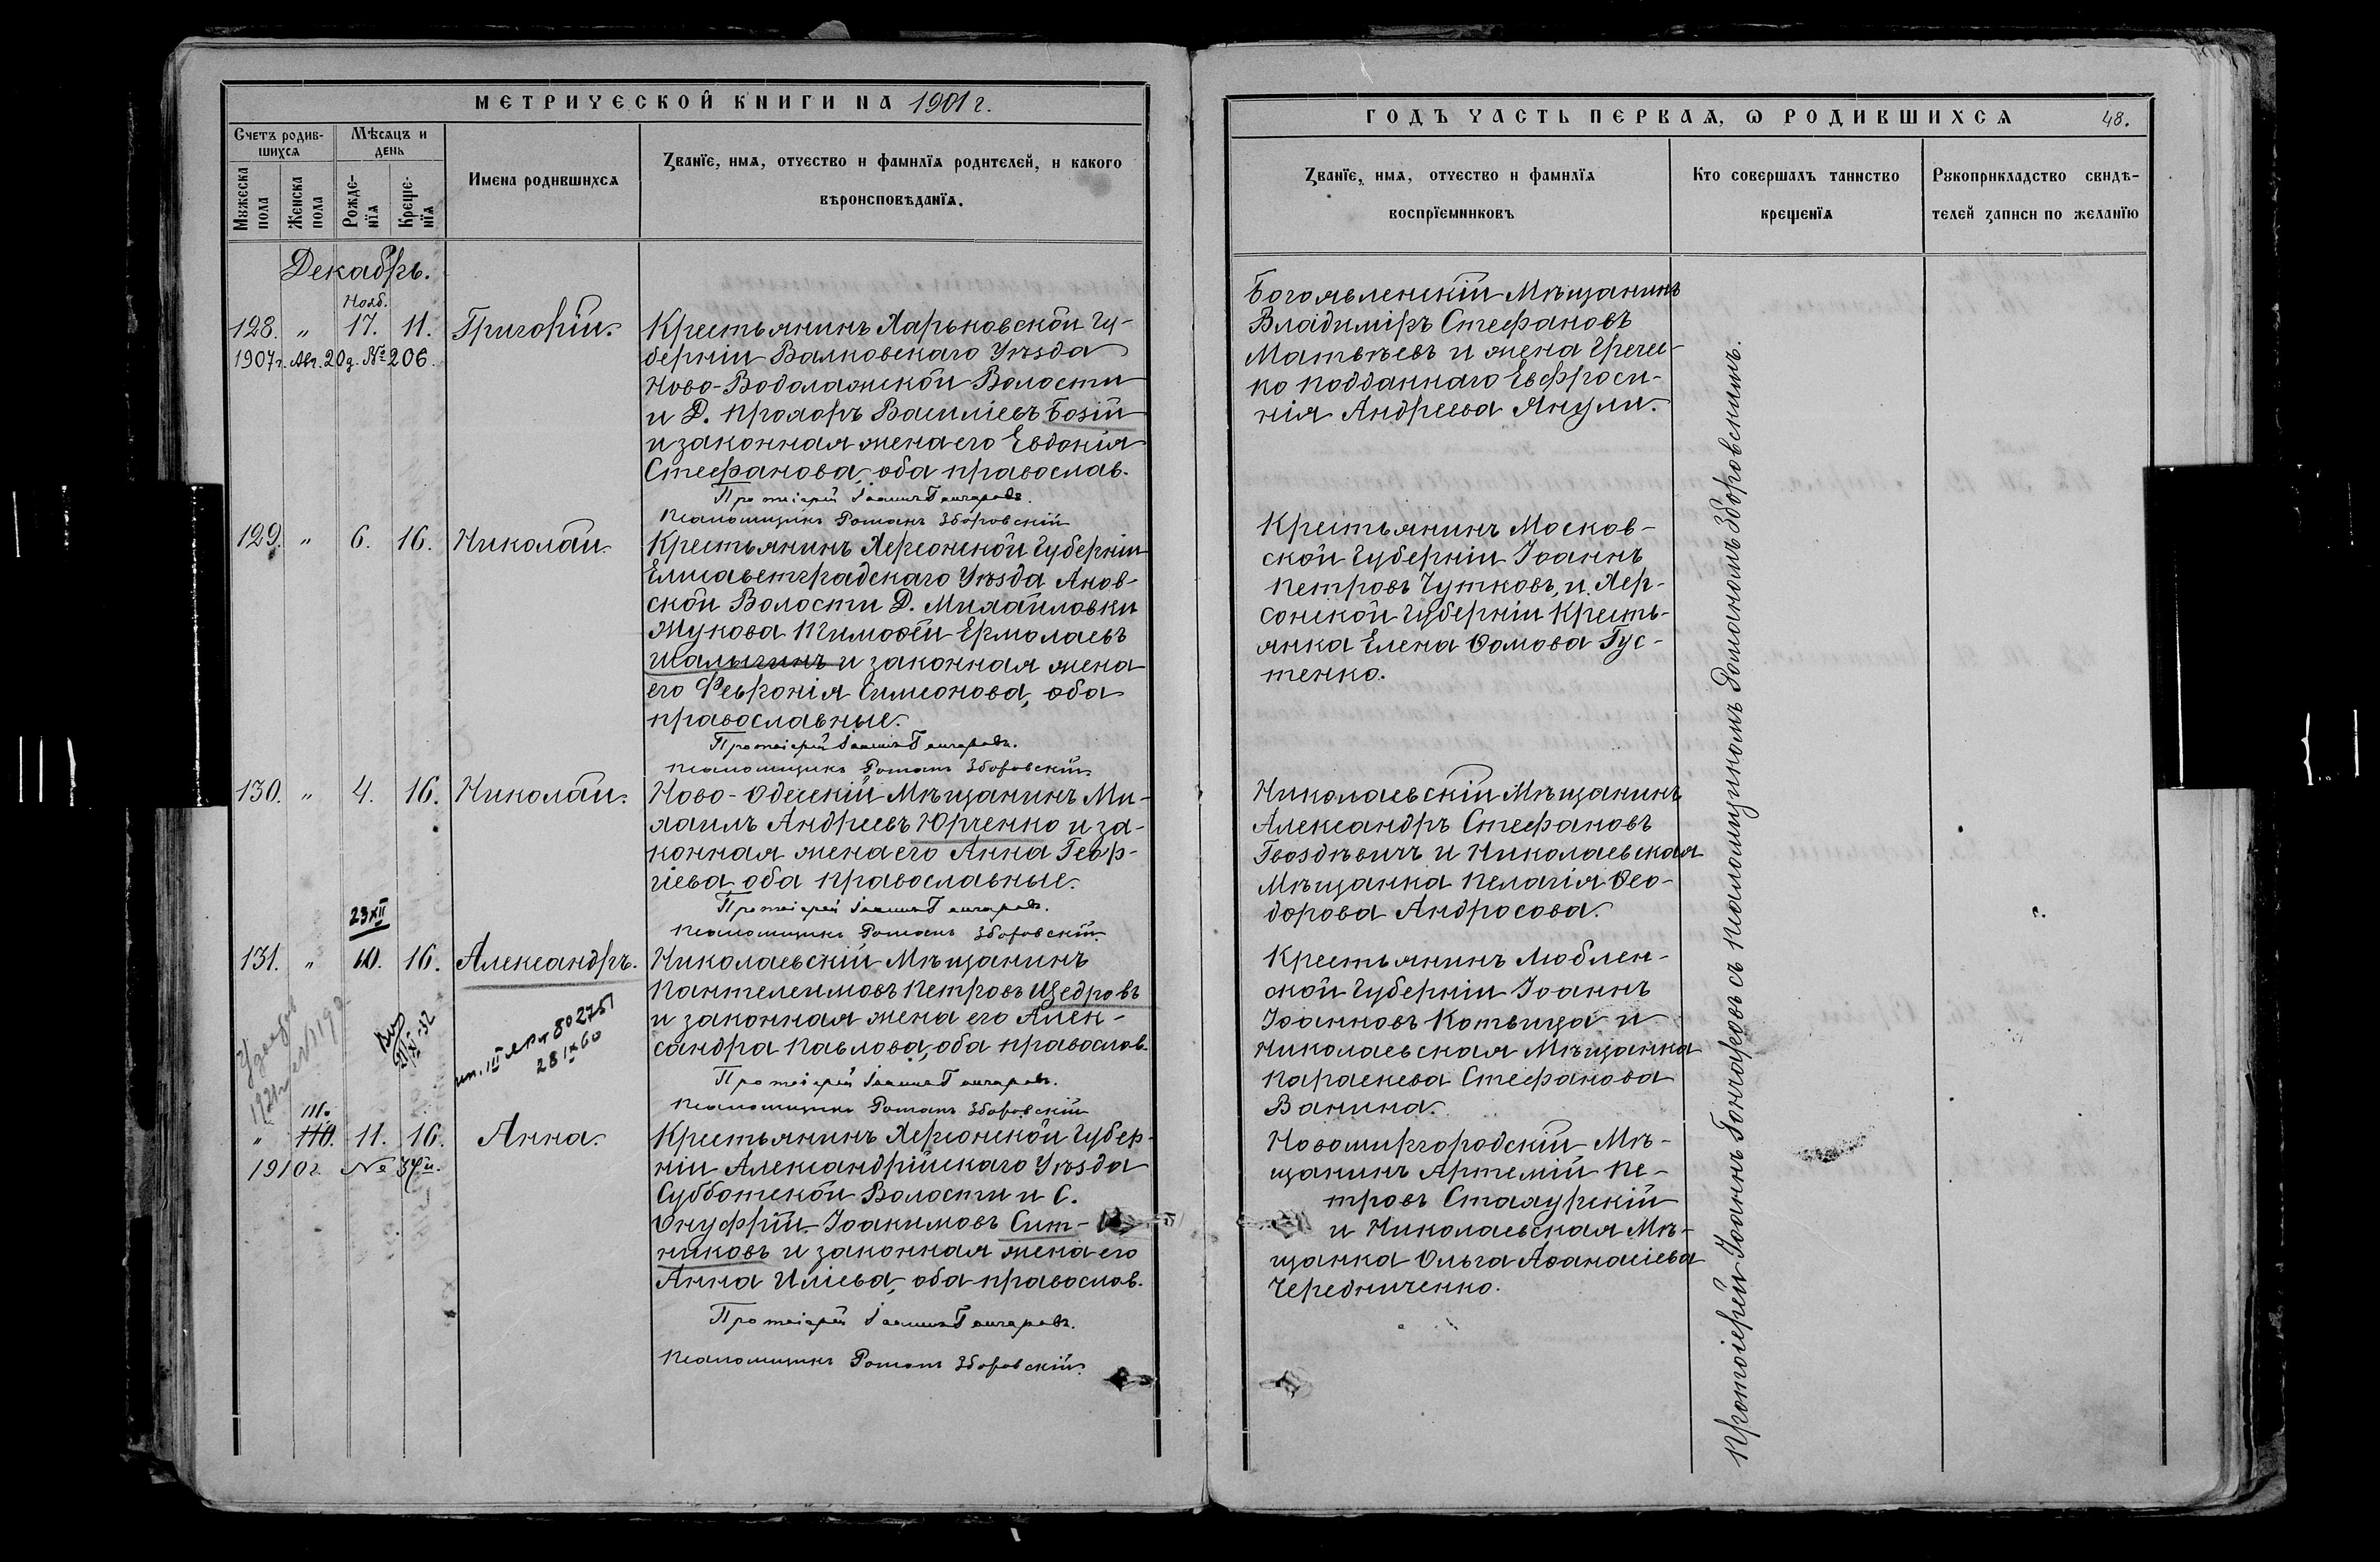 МЕТРИЧЕСКОЙ КНИГИ НА 1901 г.
Счетъ родив-
шихся
Мѣсяцъ и
день
Мужеска
пола
Женска
пола
Рожде-
нїя
Креще-
нїя
Имена родившихся
Званїе, имя, отчество и фамилїя родителей, и какого
вѣроисповѣданїя.
Декабрь.
Нояб.
128. " 17. 11. Григорій.
1907 г. Авг. 20 д. № 206.
Крестьянинъ Харьковской Гу-
берніи Валковскаго Уѣзда
Ново-Водолажской Волости
и Д. Прохоръ Василіевъ Бозій
и законная жена его Евдокія
Стефанова, оба православ.
Протоіерей Іоаннъ Гончаровъ.
Псаломщикъ Романъ Зборовскій
129. " 6. 16. Николай
Крестьянинъ Херсонской Губерніи
Елисаветградскаго Уѣзда Анов-
ской Волости Д. Михайловки
Жукова Тимоѳей Ермолаевъ
Шалыгинъ и законная жена
его Феврокія Симеонова, оба
православные.
Протоіерей Іоаннъ Гончаровъ.
Псаломщикъ Романъ Зборовскій.
130. " 4. 16. Николай.
Ново-Одесскій Мѣщанинъ Ми-
хаилъ Андреевъ Юрченко и за-
конная жена его Анна Геор-
гіева, оба православные.
Протоіерей Іоаннъ Гончаровъ.
Псаломщикъ Романъ Зборовскій.
23 XII
131. " 10. 16. Александръ.
Николаевскій Мѣщанинъ
Пантелеимовъ Петровъ Щедровъ
и законная жена его Алек-
сандра Павлова, оба православ.
Протоіерей Іоаннъ Гончаровъ.
Псаломщикъ Романъ Зборовскій
802751
28 IX 60
111.
" 110. 11. 16. Анна.
1910 г. №
Крестьянинъ Херсонской Губер-
ніи Александрійскаго Уѣзда
Субботской Волости и С.
Онуфрій Іоакимовъ Сит-
никовъ и законная жена его
Анна Иліева, оба православ.
Протоіерей Іоаннъ Гончаровъ.
Псаломщикъ Романъ Зборовскій.
ГОДЪ ЧАСТЬ ПЕРВАЯ, Ѡ РОДИВШИХСЯ 48.
Званїе, имя, отчество и фамилїя
воспрїемниковъ
Кто совершалъ таинство
крещенїя
Рукоприкладство свидѣ-
телей записи по желанїю
Богоявленскій Мѣщанинъ
Владиміръ Стефановъ
Матвѣевъ и жена Гречес-
ко подданнаго Евфроси-
нія Андреева Янули.
Крестьянинъ Москов-
ской Губерніи Іоаннъ
Петровъ Гутковъ, и Хер-
сонской Губерніи Кресть-
янка Елена Ѳомова Гус-
тенко.
Николаевскій Мѣщанинъ
Александръ Стефановъ
Гвоздѣвичъ и Николаевская
Мѣщанка Пелагія Ѳео-
дорова Андросова.
Крестьянинъ Люблен-
ской Губерніи Іоаннъ
Іоанновъ Котвица и
Николаевская Мѣщанка
Параскева Стефанова
Ванина.
Новомиргородскій Мѣ-
щанинъ Артемій Пе-
тровъ Стахурскій
и Николаевская Мѣ-
щанка Ольга Аѳанасіева
Чередниченко.
Протоіерей Іоаннъ Гончаровъ съ псаломщикомъ Романомъ Зборовскимъ.